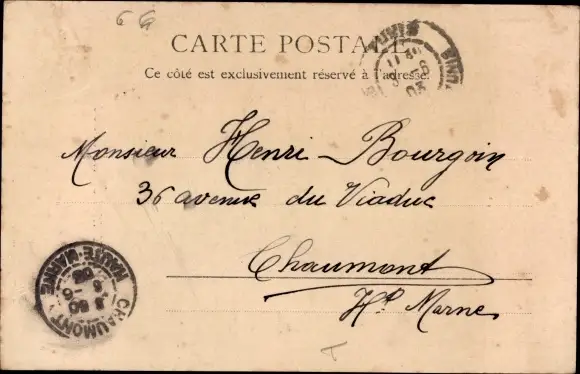 6
CARTE POSTALE
Ce côté est exclusivement réservé à l'adresse.
Monsieur Henri Bourgoin
36 avenue du Viaduc
Chaumont
Hte Marne
CHAUMONT
HAUTE-MARNE